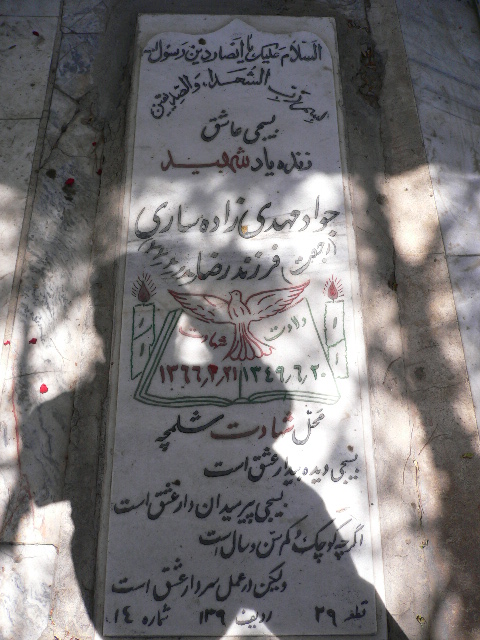 السلام علیکم یا انصار دین رسول الله
الشهداء والصدیقین
بسیجی عاشق
زنده یاد شهید
جواد مهدی زاده ساری
فرزند رضا
ولادت
شهادت
۱۳۴۹/۶/۲۰
۱۳۶۶/۳/۲۱
محل شهادت شلمچه
بسیجی دیده بیدار عشق است
بسیجی پیر میدان دار عشق است
اگرچه کوچک و کم سن و سال است
ولیکن در عمل سردار عشق است
قطعه ۲۹ ردیف ۱۳۹ شماره ۱٤